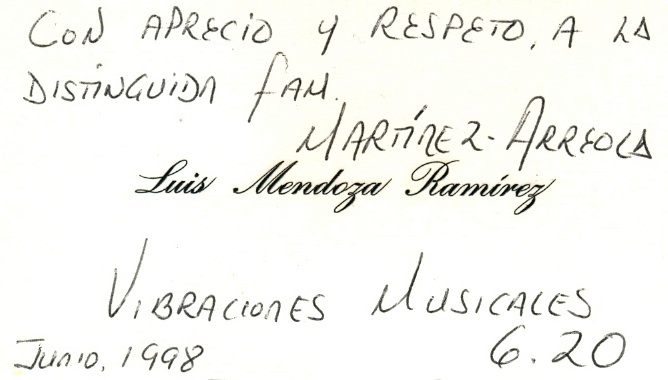 CON APRECIO Y RESPETO, A LA
DISTINGUIDA FAM.
MARTÍNEZ-ARREOLA
Luis Mendoza Ramírez
VIBRACIONES MUSICALES
JUNIO, 1998 6.20